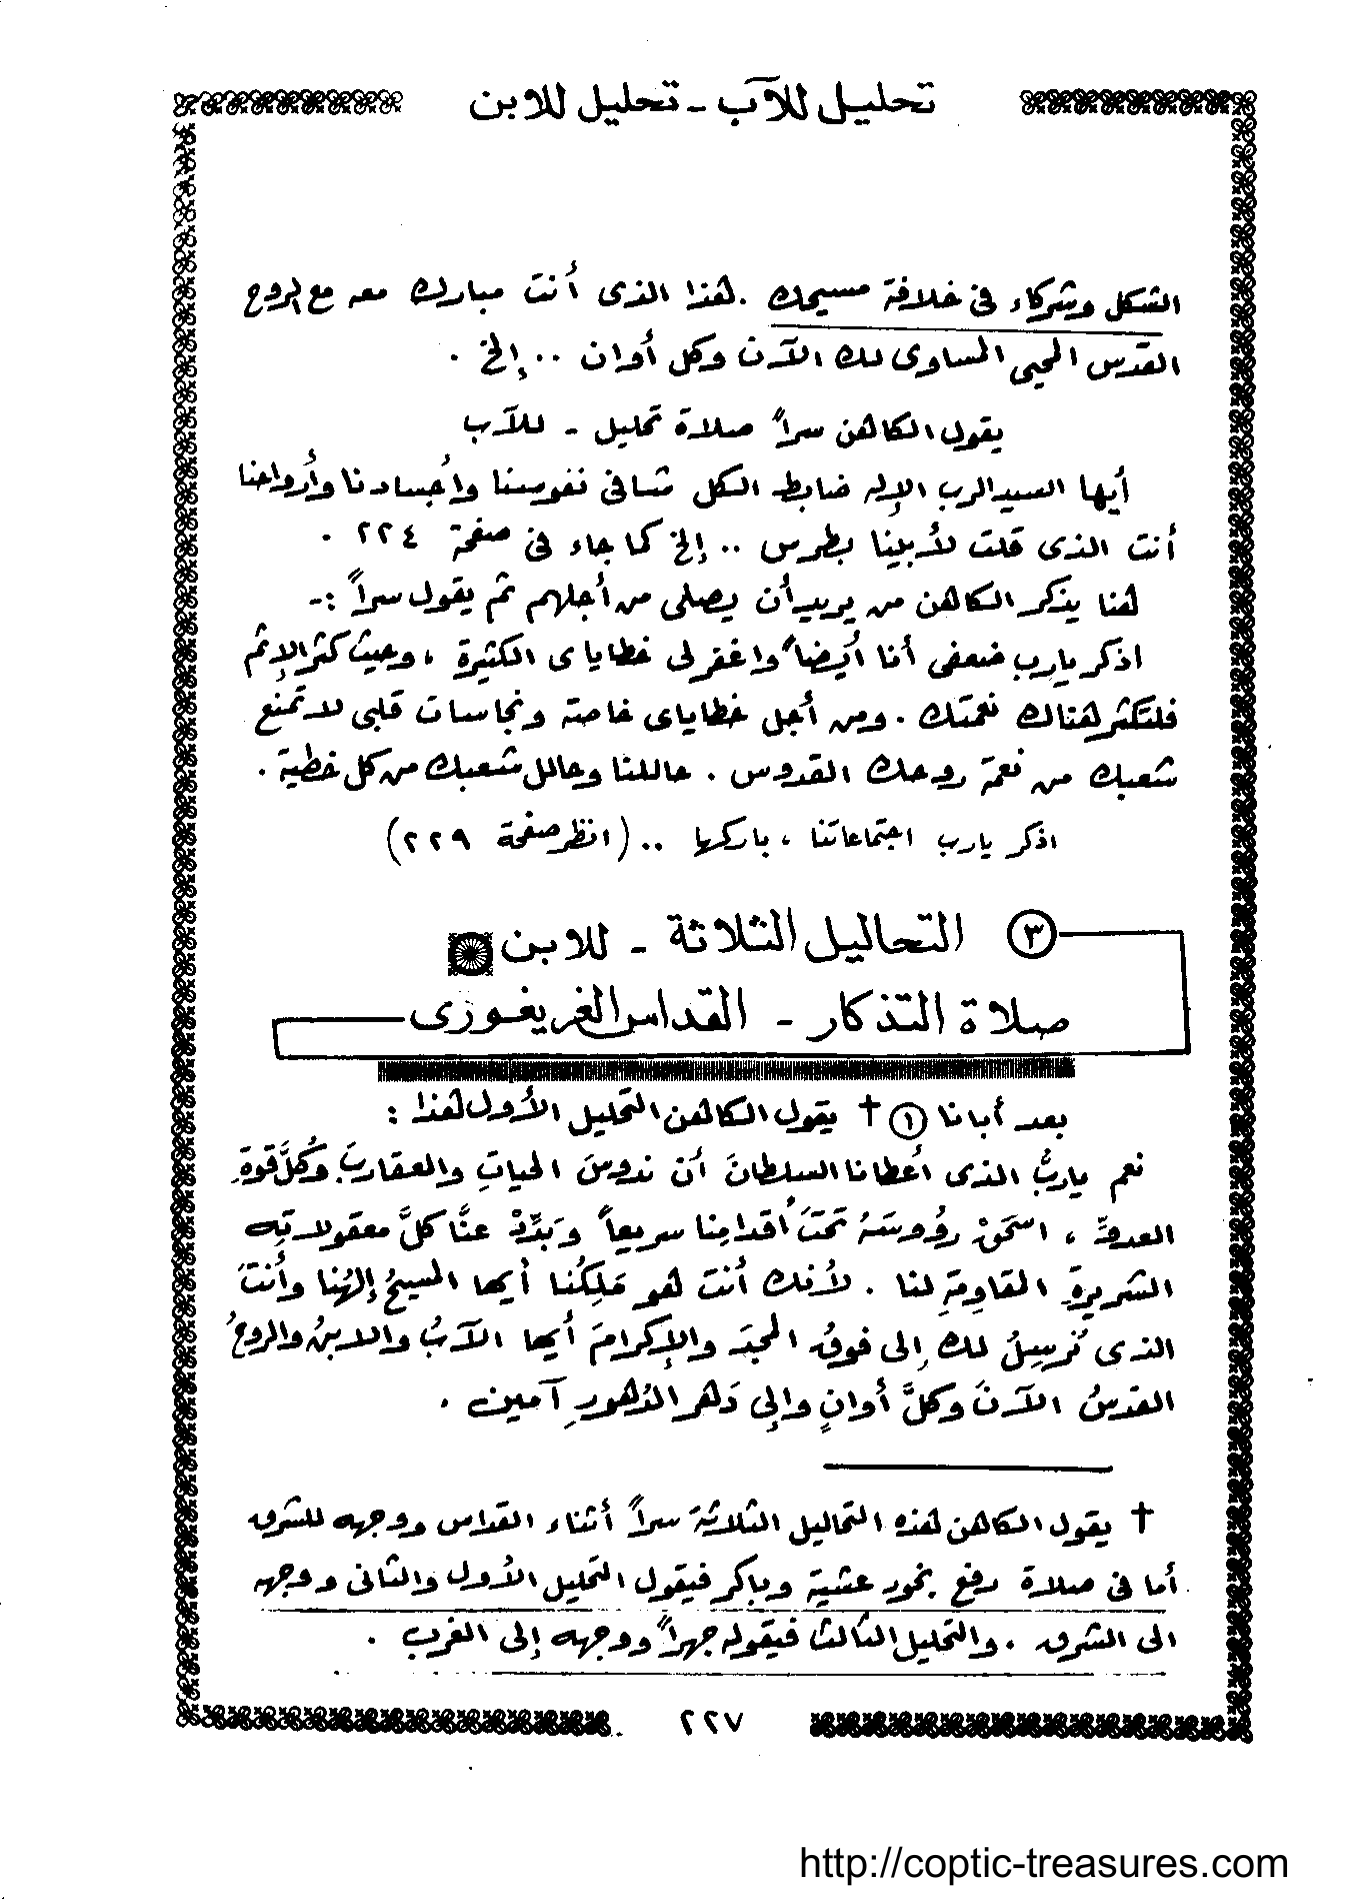 تحليل للآب - تحليل للابن
الشكل وشركاء فى خلافة مسيحك . هذا الذى أنت مبارك معه مع الروح
القدس المحيى المساوى لك الآن وكل أوان .. إلخ .
يقول الكاهن سراً صلاة تحليل - للآب
أيها السيد الرب الإله ضابط الكل شافى نفوسنا وأجسادنا وأرواحنا
أنت الذى قلت لأبينا بطرس .. إلخ كما جاء فى صفحة ٢٢٤ .
هنا يذكر الكاهن من يريد أن يصلى من أجلهم ثم يقول سراً :-
اذكر يارب ضعفى أنا أيضاً واغفر لى خطاياى الكثيرة ، وحيث كثر الإثم
فلتكثر هناك نعمتك . ومن أجل خطاياى خاصة ونجاسات قلبى لا تمنع
شعبك من نعمة روحك القدوس . حاللنا وحالل شعبك من كل خطية .
اذكر يارب اجتماعاتنا ، باركها .. (انظر صفحة ٢٢٩)
٣ التحاليل الثلاثة - للابن
صلاة التذكار - القداس الغريغورى
بعد أبانا ١ † يقول الكاهن التحليل الأول هذا :
نعم ياربُّ الذى أعطانا السلطانَ أن ندوسَ الحياتِ والعقاربَ وكُلَّ قوةِ
العدوِّ ، اسحَقْ رؤوسَهُ تحتَ أقدامِنا سريعاً وبَدِّدْ عنَّا كلَّ معقولاتِه
الشريرةِ المقاوِمةِ لنا . لأنك أنتَ هو مَلِكُنا أيها المسيحُ إلهُنا وأنتَ
الذى نُرسِلُ لك إلى فوقُ المجدَ والإكرامَ أيها الآبُ والابنُ والروحُ
القدسُ الآنَ وكلَّ أوانٍ وإلى دَهرِ الدُهورِ آمين .
† يقول الكاهن هذه التحاليل الثلاثة سراً أثناء القداس ووجهه للشرق
أما فى صلاة رفع بخور عشية وباكر فيقول التحليل الأول والثانى ووجهه
الى الشرق . والتحليل الثالث فيقوله جهراً ووجهه إلى الغرب .
٢٢٧
http://coptic-treasures.com